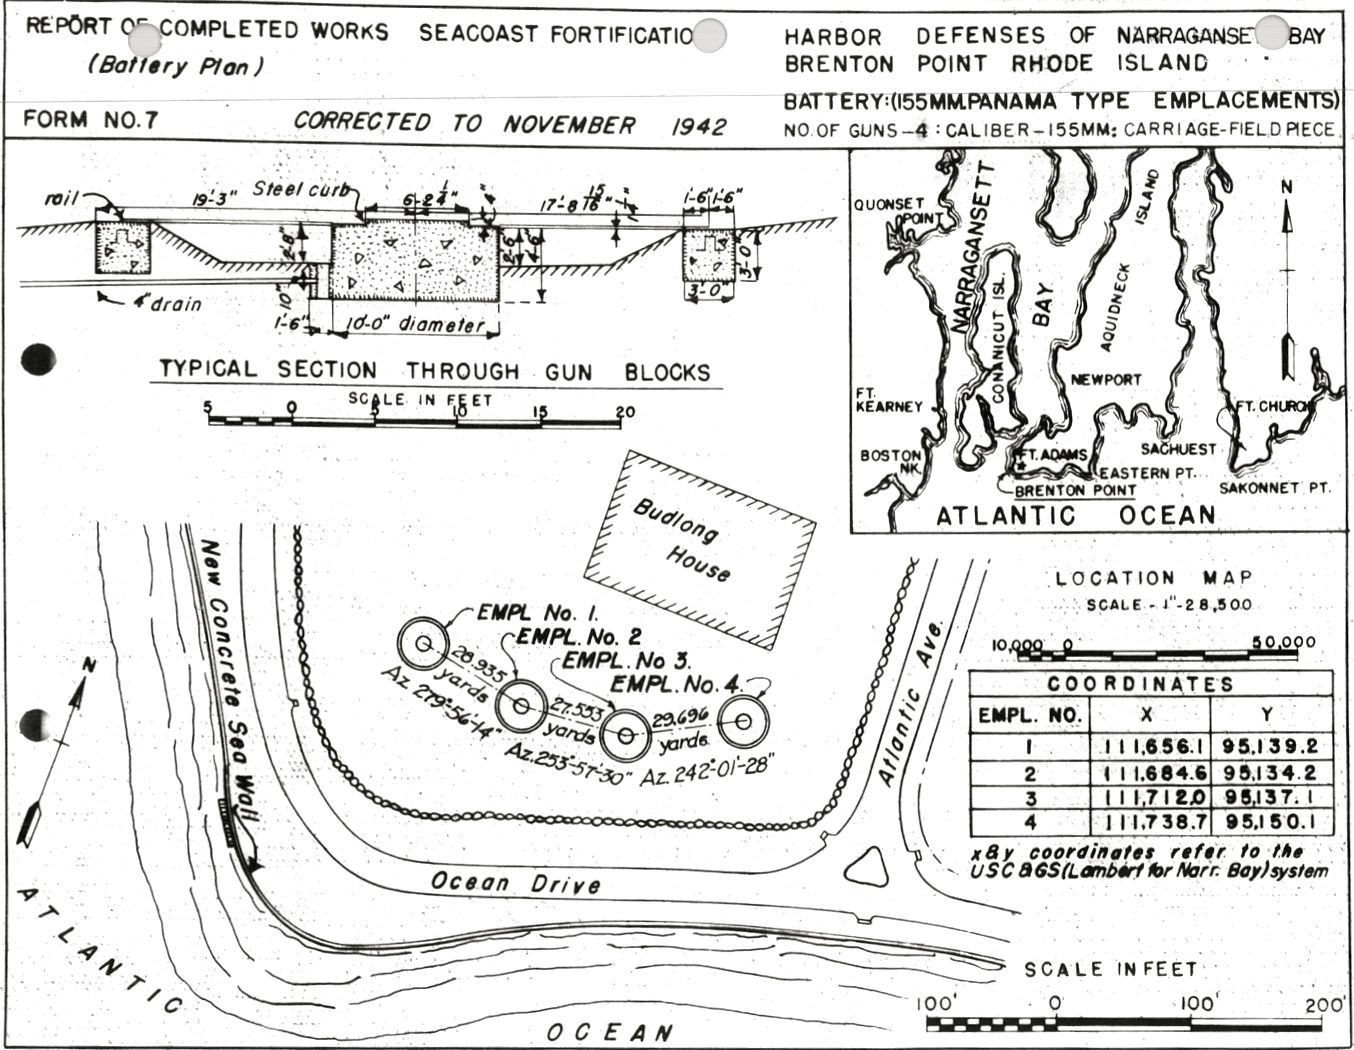 REPORT OF COMPLETED WORKS SEACOAST FORTIFICATIO
(Battery Plan)
FORM NO.7 CORRECTED TO NOVEMBER 1942
HARBOR DEFENSES OF NARRAGANSET BAY
BRENTON POINT RHODE ISLAND
BATTERY:(155MM.PANAMA TYPE EMPLACEMENTS)
NO.OF GUNS-4 : CALIBER-155MM: CARRIAGE-FIELD PIECE
rail
19'-3"
Steel curb
6-2 1/4"
4"
17'-8 15/16"
1'-6" 1'-6"
2'-8"
2'-6"
4'-6"
3'-0"
3'-0"
4" drain
1'-10"
1'-6"
10'-0" diameter
TYPICAL SECTION THROUGH GUN BLOCKS
SCALE IN FEET
5 0 5 10 15 20
QUONSET
POINT
NARRAGANSETT
BAY
CONANICUT ISL.
AQUIDNECK
ISLAND
N
NEWPORT
FT.
KEARNEY
FT. CHURCH
BOSTON
NK.
FT. ADAMS
SACHUEST
EASTERN PT.
BRENTON POINT
SAKONNET PT.
ATLANTIC OCEAN
LOCATION MAP
SCALE - 1"-28,500
10,000 0 50,000
Budlong
House
New Concrete Sea Wall
EMPL No. 1.
EMPL. No. 2
EMPL. No 3.
EMPL. No. 4.
28.935
yards
Az. 279°-56'-14"
27.553
yards
Az. 253°-57'-30"
29.696
yards
Az. 242°-01'-28"
N
Atlantic Ave.
Ocean Drive
ATLANTIC
OCEAN
COORDINATES
EMPL. NO. X Y
1 111,656.1 95,139.2
2 111,684.6 95,134.2
3 111,712.0 95,137.1
4 111,738.7 95,150.1
x & y coordinates refer to the
USC & GS (Lambert for Narr. Bay) system
SCALE IN FEET
100' 0' 100' 200'